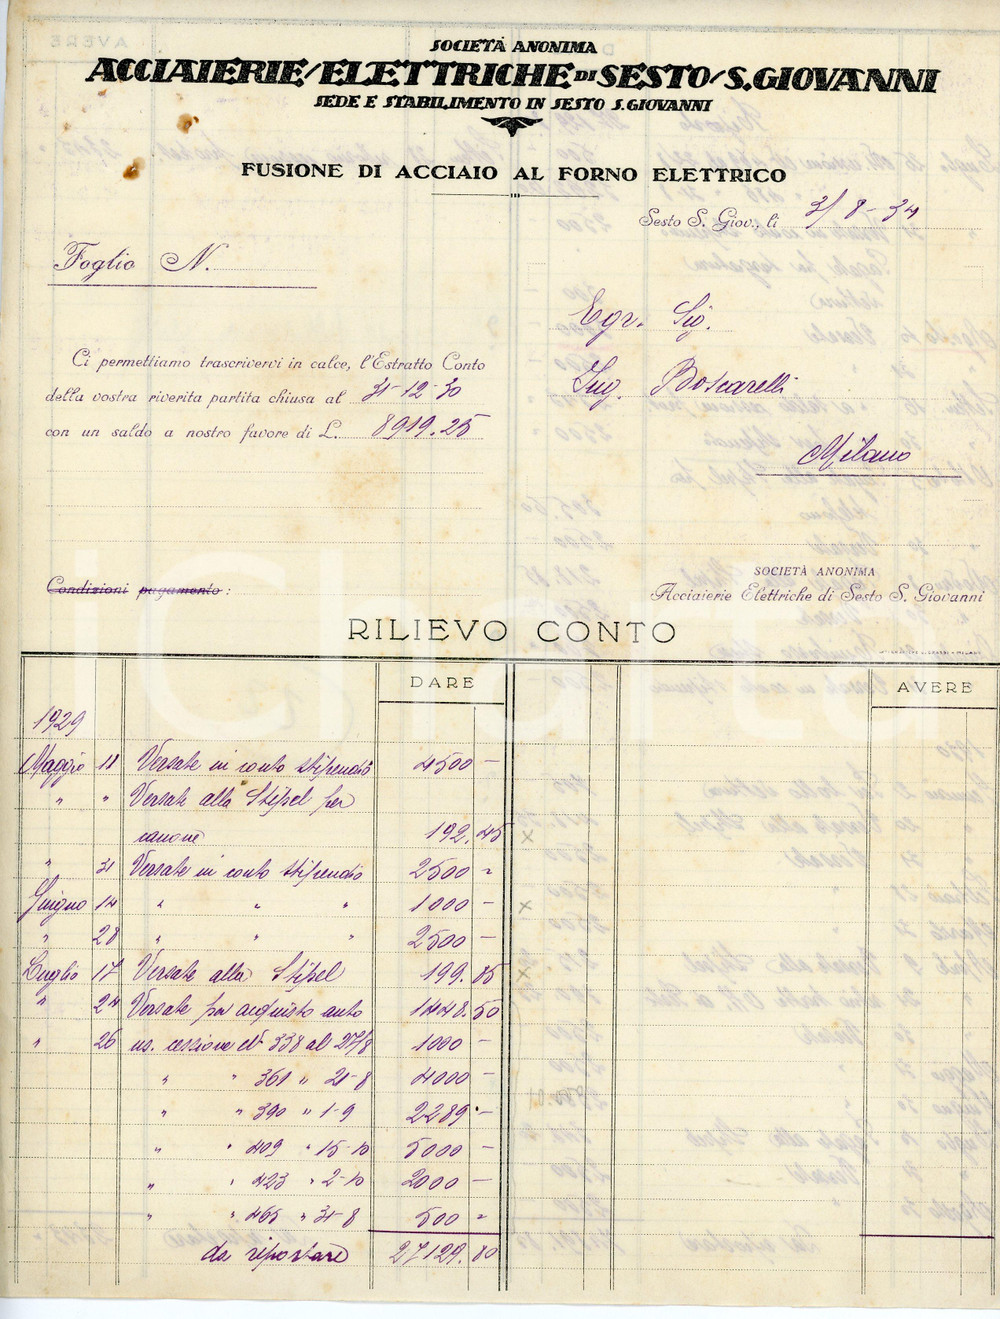 SOCIETÀ ANONIMA
ACCIAIERIE ELETTRICHE DI SESTO S. GIOVANNI
SEDE E STABILIMENTO IN SESTO S. GIOVANNI
FUSIONE DI ACCIAIO AL FORNO ELETTRICO
Sesto S. Giov., lì 3/8-34
Foglio N.
Egr. Sig.
Ing. Boscarelli
Milano
Ci permettiamo trascrivervi in calce, l'Estratto Conto
della vostra riverita partita chiusa al 31-12-30
con un saldo a nostro favore di L. 8919.25
Condizioni pagamento :
SOCIETÀ ANONIMA
Acciaierie Elettriche di Sesto S. Giovanni
RILIEVO CONTO
DARE AVERE
1929
Maggio 11 Versate in conto stipendio 4500 —
" " Versate alla Stipel per
canone 192.45
" 31 Versate in conto stipendio 2500 "
Giugno 14 " " " 1000 —
" 28 " " " 2500 —
Luglio 17 Versate alla Stipel 199.85
" 24 Versate per acquisto auto 1448.50
" 26 ns. cessione N° 338 al 27/8 1000 —
" " 361 " 21-8 4000 —
" " 390 " 1-9 2289 —
" " 409 " 15-10 5000 —
" " 423 " 2-10 2000 —
" " 465 " 31-8 500 "
da riportare 27129.80
iCharta